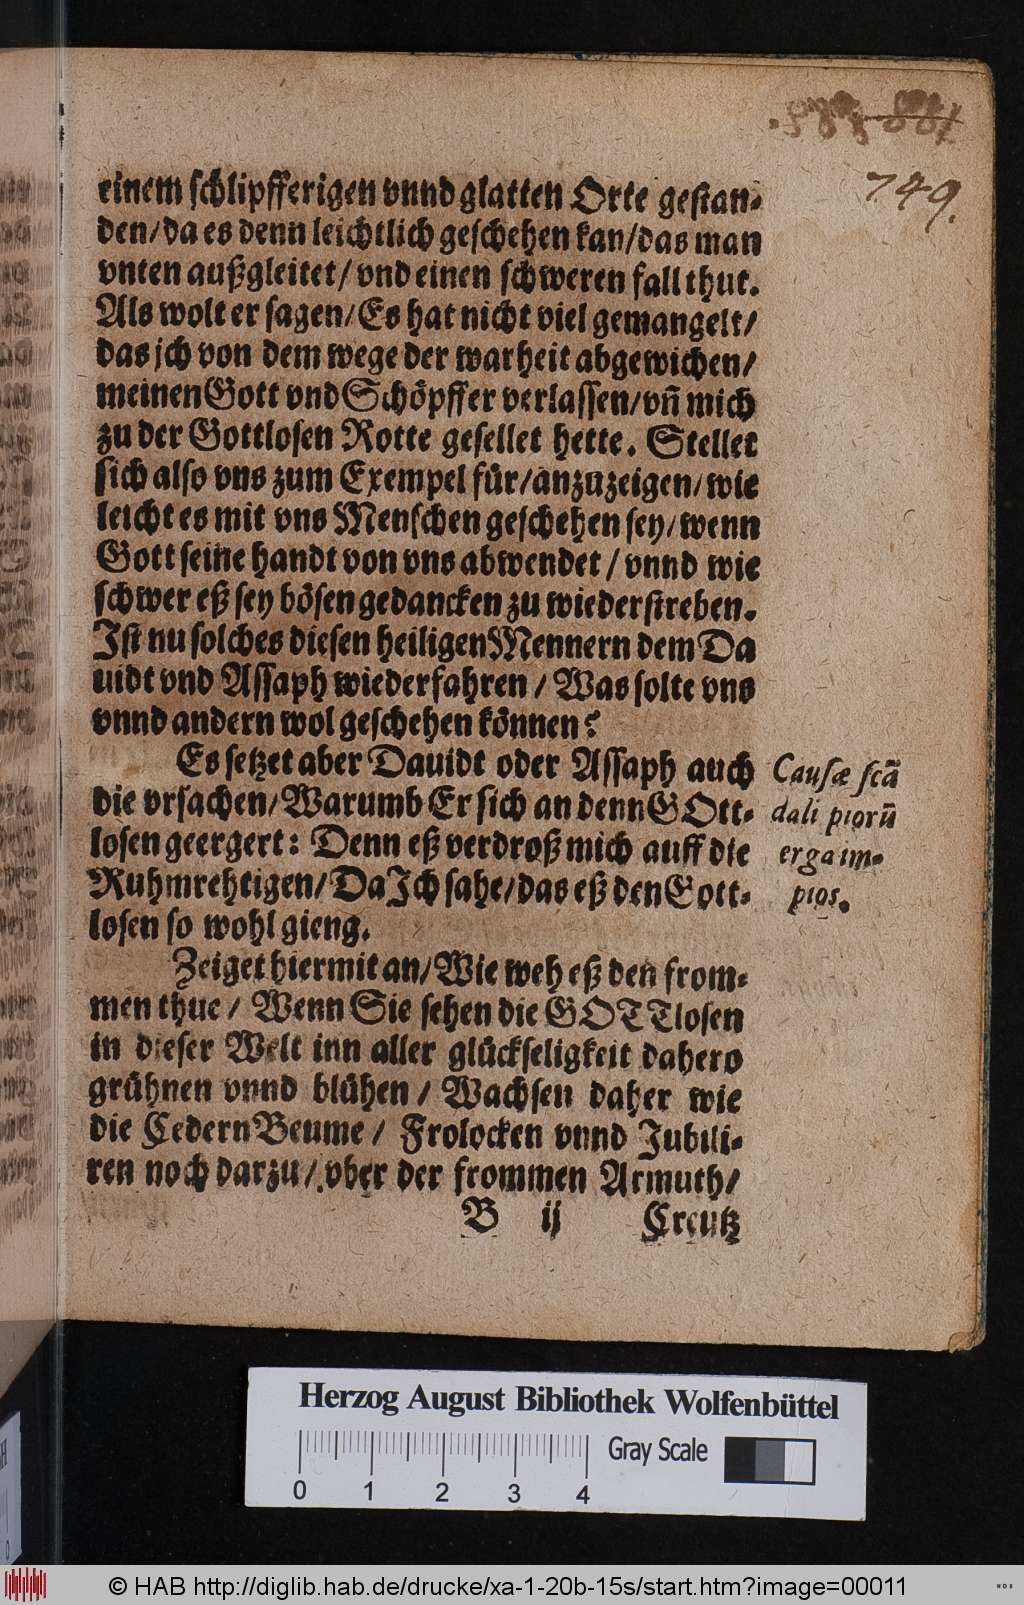 749.
einem schlipfferigen vnnd glatten Orte gestan-
den/da es denn leichtlich geschehen kan/das man
vnten außgleitet/ vnd einen schweren fall thut.
Als wolt er sagen/ Es hat nicht viel gemangelt/
das jch von dem wege der warheit abgewichen/
meinen Gott vnd Schöpffer verlassen/vñ mich
zu der Gottlosen Rotte gesellet hette. Stellet
sich also vns zum Exempel für/anzuzeigen/wie
leicht es mit vns Menschen geschehen sey/wenn
Gott seine handt von vns abwendet / vnnd wie
schwer eß sey bösen gedancken zu wiederstreben.
Ist nu solches diesen heiligen Mennern dem Da
uidt vnd Assaph wiederfahren / Was solte vns
vnnd andern wol geschehen können?
Es setzet aber Dauidt oder Assaph auch
die vrsachen/Warumb Er sich an denn GOtt-
losen geergert: Denn eß verdroß mich auff die
Ruhmrehtigen/ Da Ich sahe/das eß den Gott-
losen so wohl gieng.
Causæ scã
dali piorũ
erga im-
pios.
Zeiget hiermit an/Wie weh eß den from-
men thue / Wenn Sie sehen die GOTTlosen
in dieser Welt inn aller glückseligkeit dahero
grühnen vnnd blühen / Wachsen daher wie
die Cedern Beume / Frolocken vnnd Jubili-
ren noch darzu / vber der frommen Armuth/
B ij Creutz
Herzog August Bibliothek Wolfenbüttel
Gray Scale
0 1 2 3 4
© HAB http://diglib.hab.de/drucke/xa-1-20b-15s/start.htm?image=00011